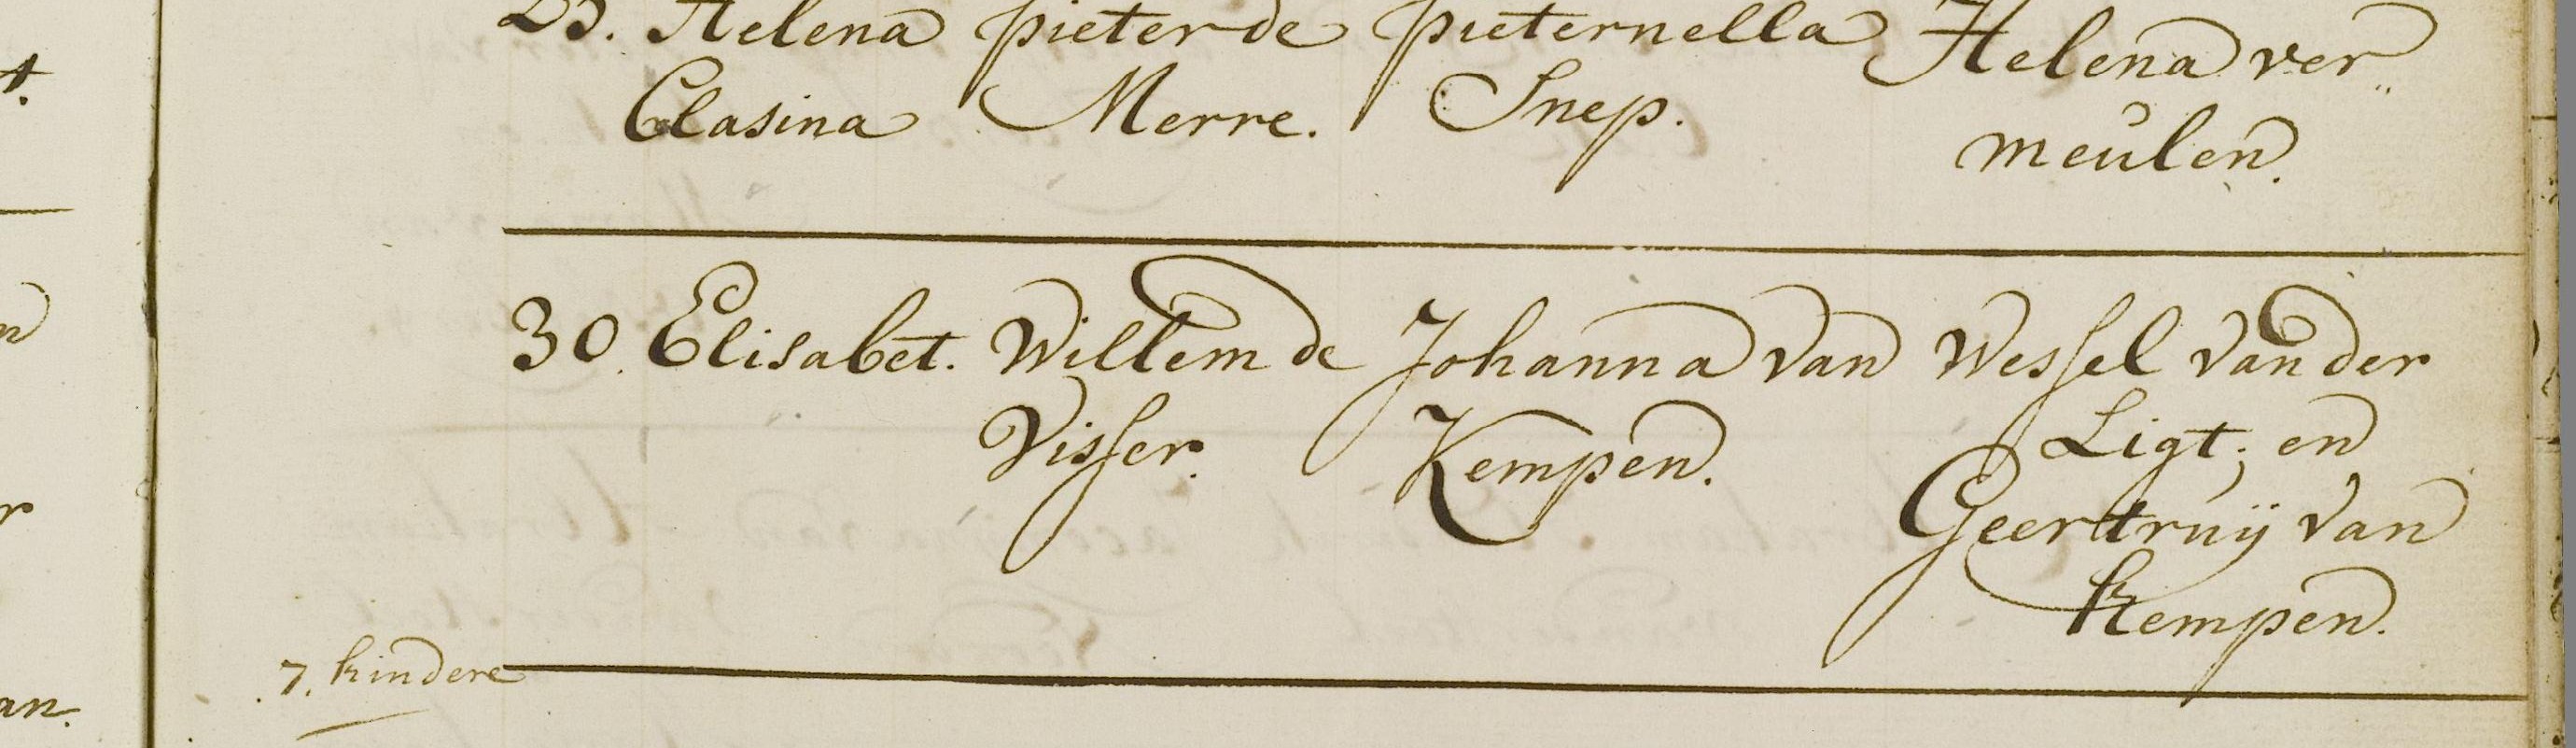 Helena pieter de pieternella Helena ver„
Clasina Merre. Snep. meulen.
30. Elisabet. Willem de Johanna van Wessel van der
Visser. Kempen. Ligt; en
Geertruij van
Kempen.
7. kindere